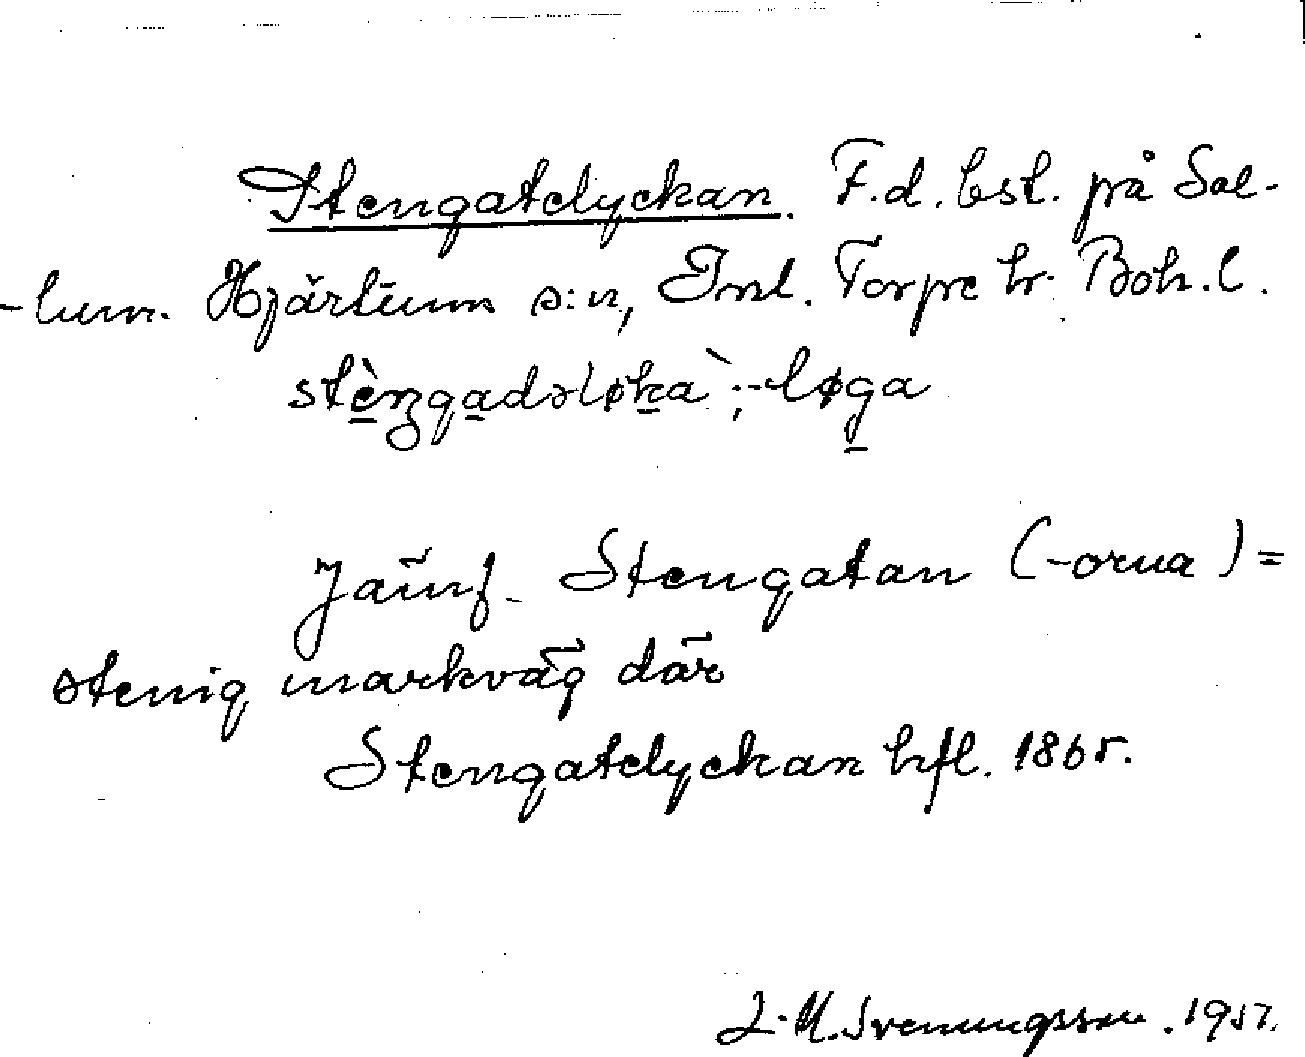 Stengatelyckan. F.d. bst. på Sal-
-lum. Hjärtum s:n, Inl. Torpe hr. Boh. l.
stèngadəløka`; -løga
Jämf. Stengatan (-orna) =
stenig markväg där
Stengatelyckan hfl. 1865.
J. M. Svenungsson. 1957.